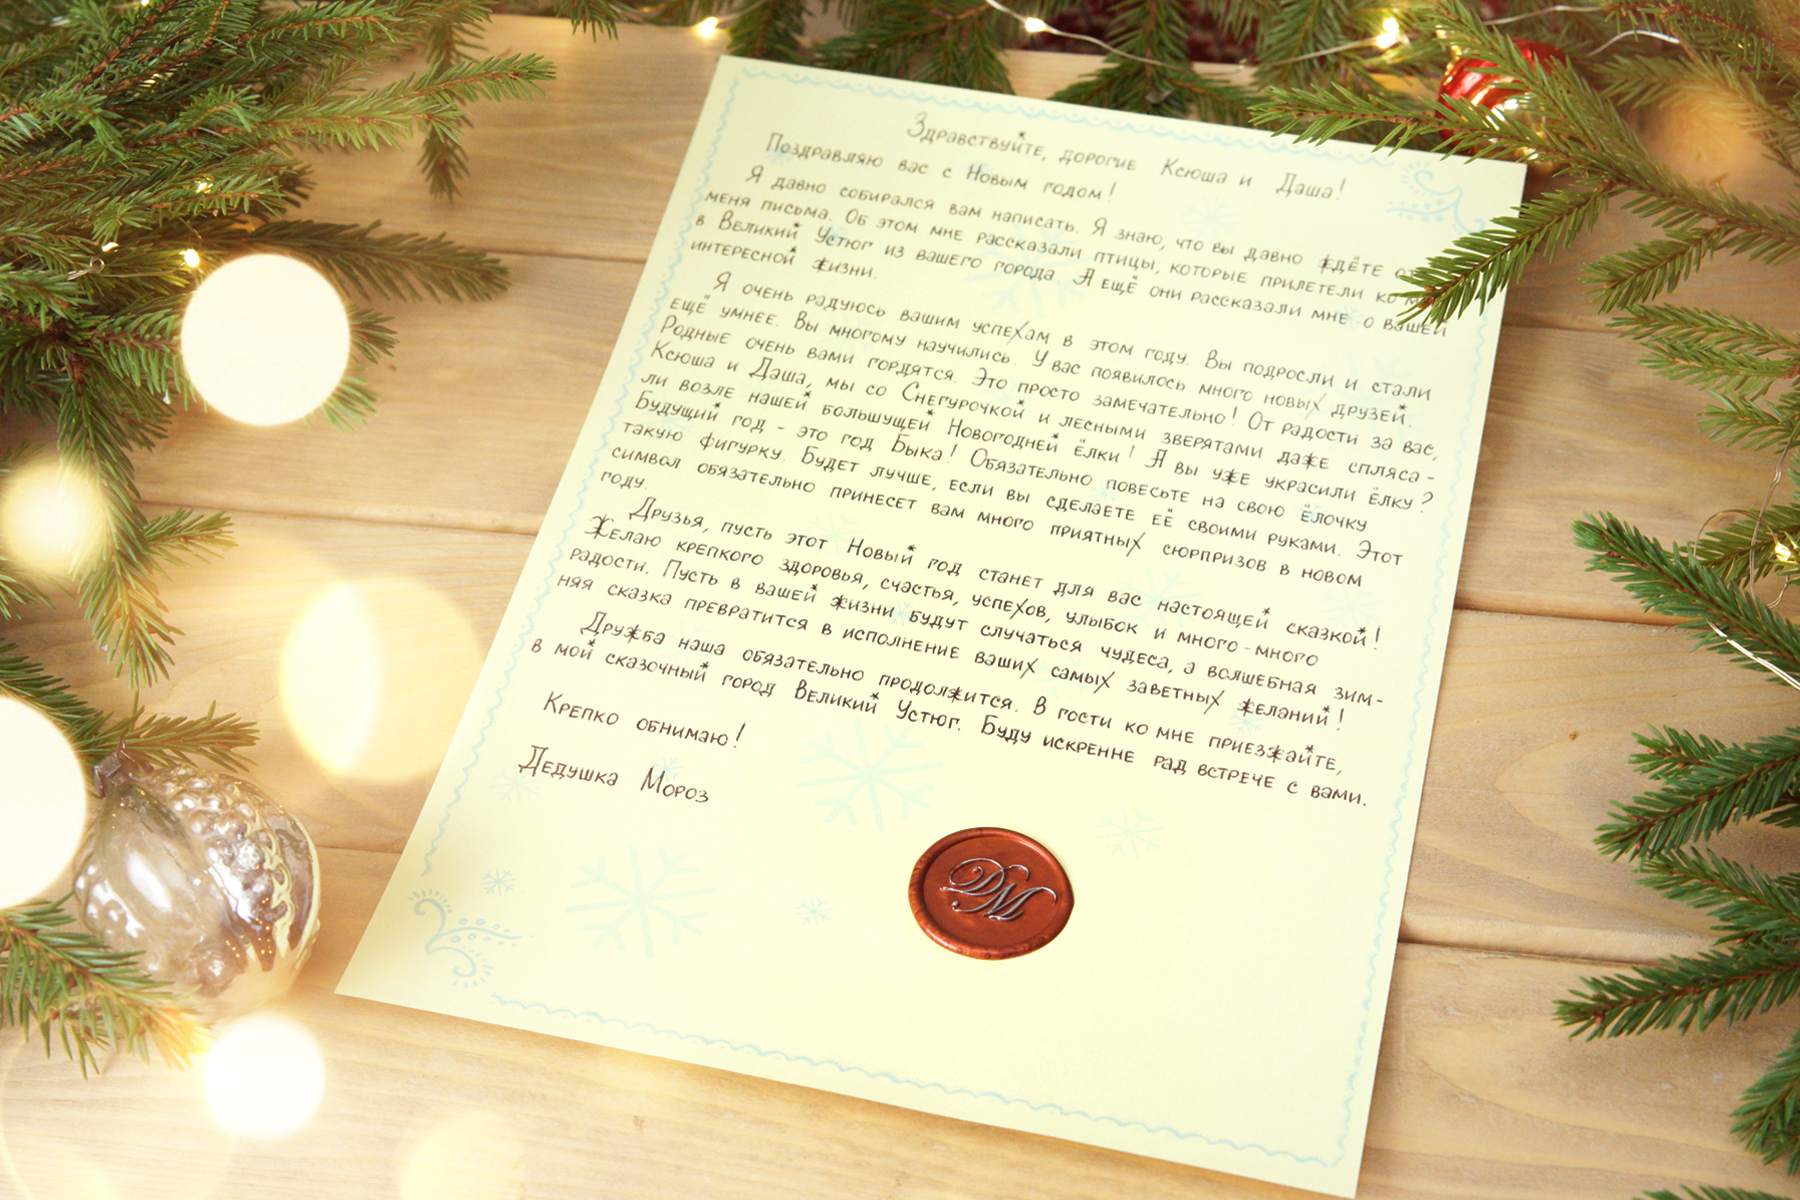 Здравствуйте, дорогие Ксюша и Даша!
Поздравляю вас с Новым годом!
Я давно собирался вам написать. Я знаю, что вы давно ждёте от
меня письма. Об этом мне рассказали птицы, которые прилетели ко
в Великий Устюг из вашего города. А ещё они рассказали мне о вашей
интересной жизни.
Я очень радуюсь вашим успехам в этом году. Вы подросли и стали
ещё умнее. Вы многому научились. У вас появилось много новых друзей.
Родные очень вами гордятся. Это просто замечательно! От радости за вас,
Ксюша и Даша, мы со Снегурочкой и лесными зверятами даже спляса-
ли возле нашей большущей Новогодней ёлки! А вы уже украсили ёлку?
Будущий год - это год Быка! Обязательно повесьте на свою ёлочку
такую фигурку. Будет лучше, если вы сделаете её своими руками. Этот
символ обязательно принесет вам много приятных сюрпризов в новом
году.
Друзья, пусть этот Новый год станет для вас настоящей сказкой!
Желаю крепкого здоровья, счастья, успехов, улыбок и много-много
радости. Пусть в вашей жизни будут случаться чудеса, а волшебная зим-
няя сказка превратится в исполнение ваших самых заветных желаний!
Дружба наша обязательно продолжится. В гости ко мне приезжайте,
в мой сказочный город Великий Устюг. Буду искренне рад встрече с вами.
Крепко обнимаю!
Дедушка Мороз
DM